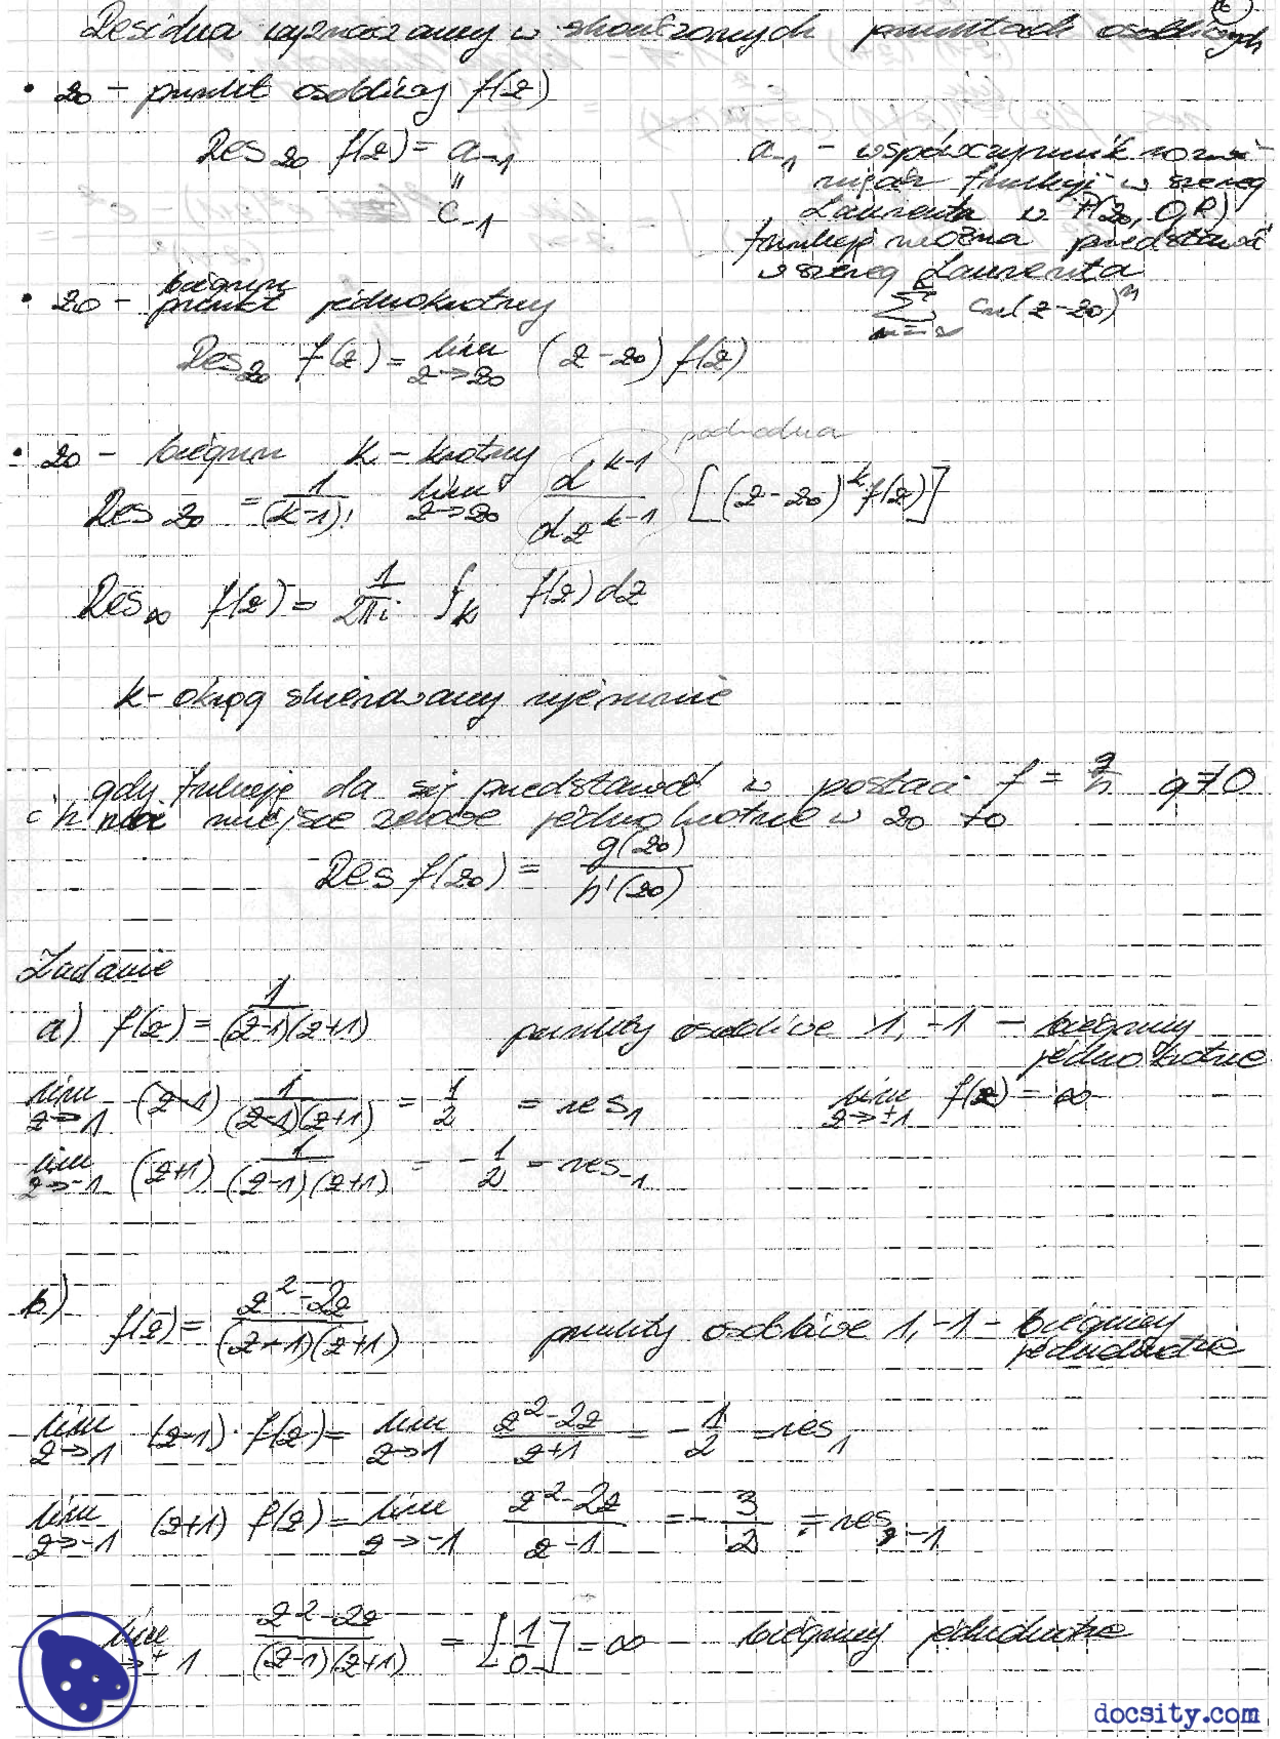 16
Residua wyznaczamy w skończonych punktach osobliwych
• z₀ – punkt osobliwy f(z)
Res_{z₀} f(z) = a₋₁
"
c₋₁
a₋₁ – współczynnik rozwi-
nięcia funkcji w szereg
Laurenta w P(z₀, 0, R)
funkcję można przedstawić
w szereg Laurenta
∑_{n=-∞} cₙ(z-z₀)ⁿ
biegun
• z₀ – punkt jednokrotny
Res_{z₀} f(z) = lim_{z→z₀} (z-z₀) f(z)
pochodna
• z₀ – biegun k-krotny
Res_{z₀} = 1/(k-1)! lim_{z→z₀} d^{k-1}/dz^{k-1} [(z-z₀)^k f(z)]
Res_∞ f(z) = 1/(2πi) ∫_k f(z) dz
k – okrąg skierowany ujemnie
gdy funkcję da się przedstawić w postaci f = g/h g≠0
i h ma miejsce zerowe jednokrotne w z₀ to
Res f(z₀) = g(z₀)/h'(z₀)
Zadanie
a) f(z) = 1/((z-1)(z+1)) punkty osobliwe 1, -1 – bieguny
jednokrotne
lim_{z→1} (z-1) 1/((z-1)(z+1)) = 1/2 = res₁ lim_{z→±1} f(z) = ∞
lim_{z→-1} (z+1) 1/((z-1)(z+1)) = -1/2 = res₋₁
b) f(z) = (z²-2z)/((z+1)(z+1)) punkty osobliwe 1, -1 – bieguny
jednokrotne
lim_{z→1} (z-1)·f(z) = lim_{z→1} (z²-2z)/(z+1) = -1/2 = res₁
lim_{z→-1} (z+1) f(z) = lim_{z→-1} (z²-2z)/(z-1) = -3/2 = res₋₁
lim_{→±1} (z²-2z)/((z-1)(z+1)) = [1/0] = ∞ – bieguny jednokrotne
docsity.com